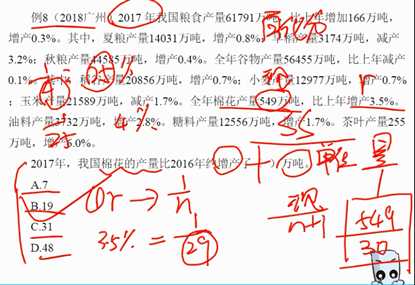 例8(2018广州)2017年我国粮食产量61791万吨,比上年增加166万吨,
增产0.3%。其中,夏粮产量14031万吨,增产0.8%;早稻产量3174万吨,减产
3.2%;秋粮产量44585万吨,增产0.4%。全年谷物产量56455万吨,比上年减产
0.1% 20856万吨,增产0.7%;小麦产量12977万吨,增产0.7%
;玉米产量21589万吨,减产1.7%。全年棉花产量549万吨,比上年增产3.5%。
油料产量3732万吨,增产2.8%。糖料产量12556万吨,增产1.7%。茶叶产量255
万吨,增产6.0%。
2017年,我国棉花的产量比2016年约增产了( )万吨。
A.7
B.19
C.31
D.48
4%
r → 1/n
3.5% = 1/29
现
n+1
549
30
单位
量